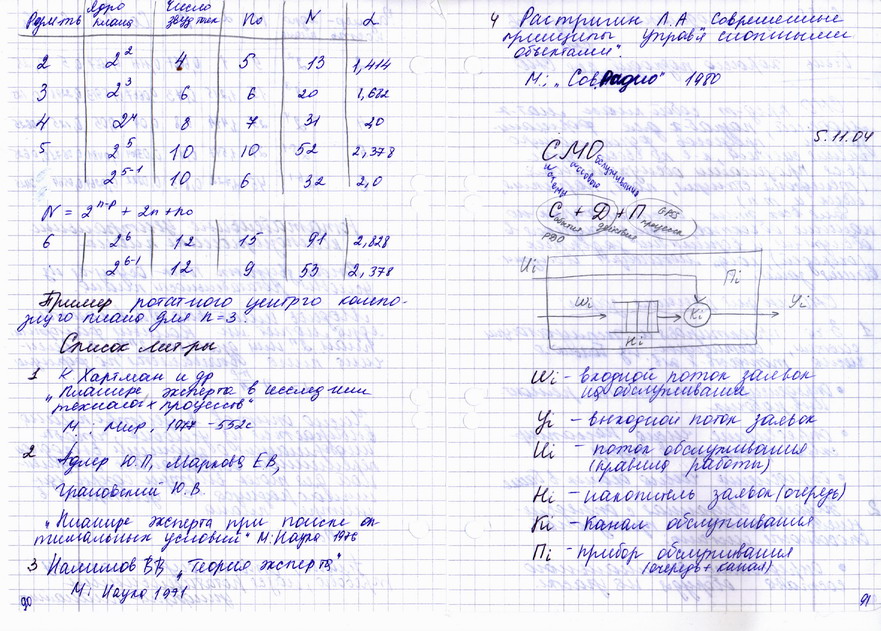 Разм-ть Ядро плана Число звезд тек n₀ N α
2 2² 4 5 13 1,414
3 2³ 6 6 20 1,682
4 2⁴ 8 7 31 2,0
5 2⁵ 10 10 52 2,378
2⁵⁻¹ 10 6 32 2,0
N = 2ⁿ⁻ᵖ + 2n + n₀
6 2⁶ 12 15 91 2,828
2⁶⁻¹ 12 9 53 2,378
Пример ротат-ного центр-го компо-
зиц-го плана для n=3.
Список лит-ры
1 К Хартман и др
"Планир-е эксперта в исслед-нии
технолог-х процессов"
М: Мир, 1977 -552с
2 Адлер Ю.П, Маркова ЕВ,
Грановский Ю.В.
"Планир-е эксперта при поиске оп
тимальных условий" М:Наука 1976
3 Налимов ВВ "Теория эксперта"
М: Наука 1971
90
4 Растригин Л.А Современные
принципы управ-я сложными
объектами".
М: "Сов Радио" 1980
5.11.04
СМО
обслуживания
массового
С + Д + П
GPSS
события действия процессы
РДО
Иi
Пi
Wi Кi Yi
Нi
Wi - входной поток заявок
на обслуживание
Yi - выходной поток заявок
Иi - поток обслуживания
(правила работы)
Нi - накопитель заявок (очередь)
Кi - канал обслуживания
Пi - прибор обслуживания
(очередь + канал)
91